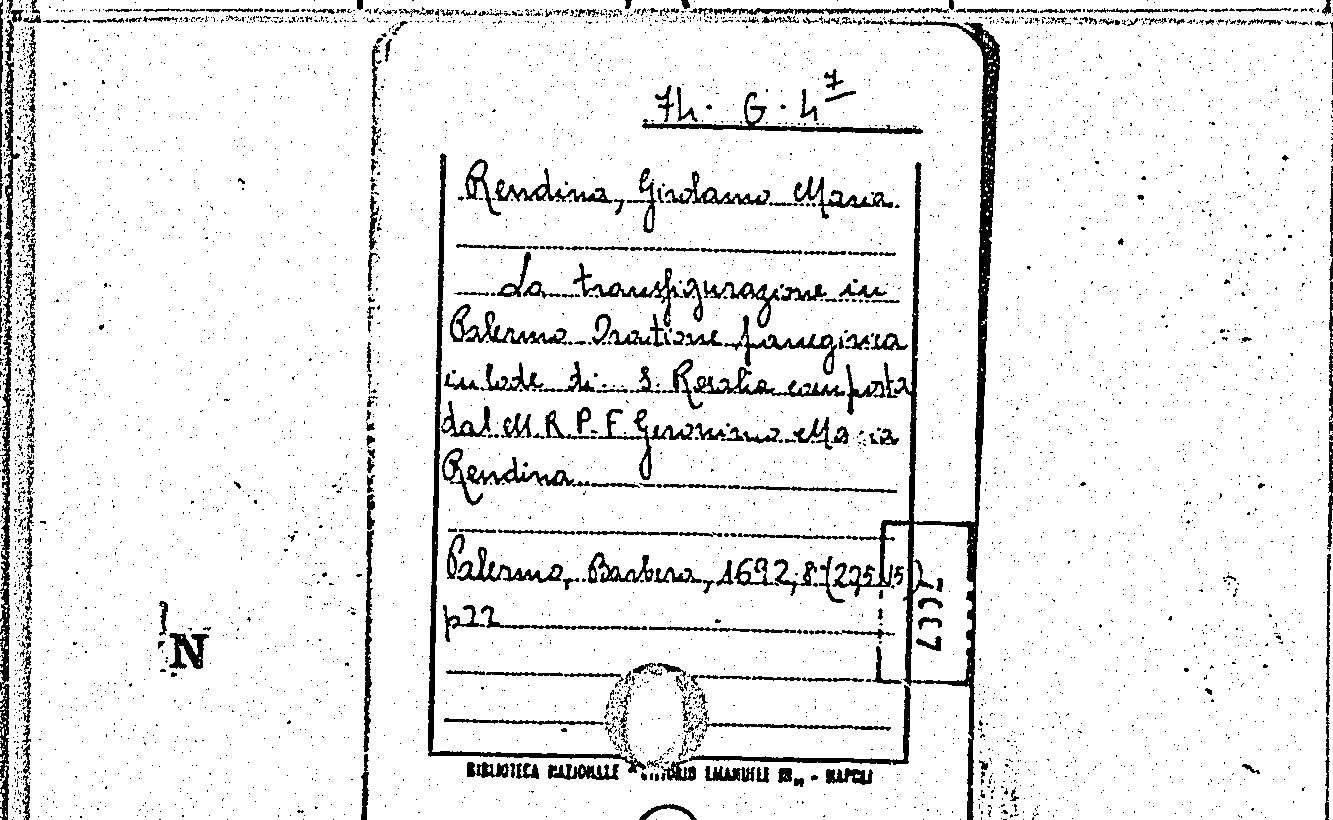 74. G. 4 7
Rendina, Girolamo Maria
La transfigurazione in
Palermo Oratione panegirica
in lode di S. Rosalia composta
dal M. R. P. F. Geronimo Maria
Rendina
Palermo, Barbera, 1692, 8° (27,5
p 22
N
BIBLIOTECA NAZIONALE "VITTORIO EMANUELE III" - NAPOLI